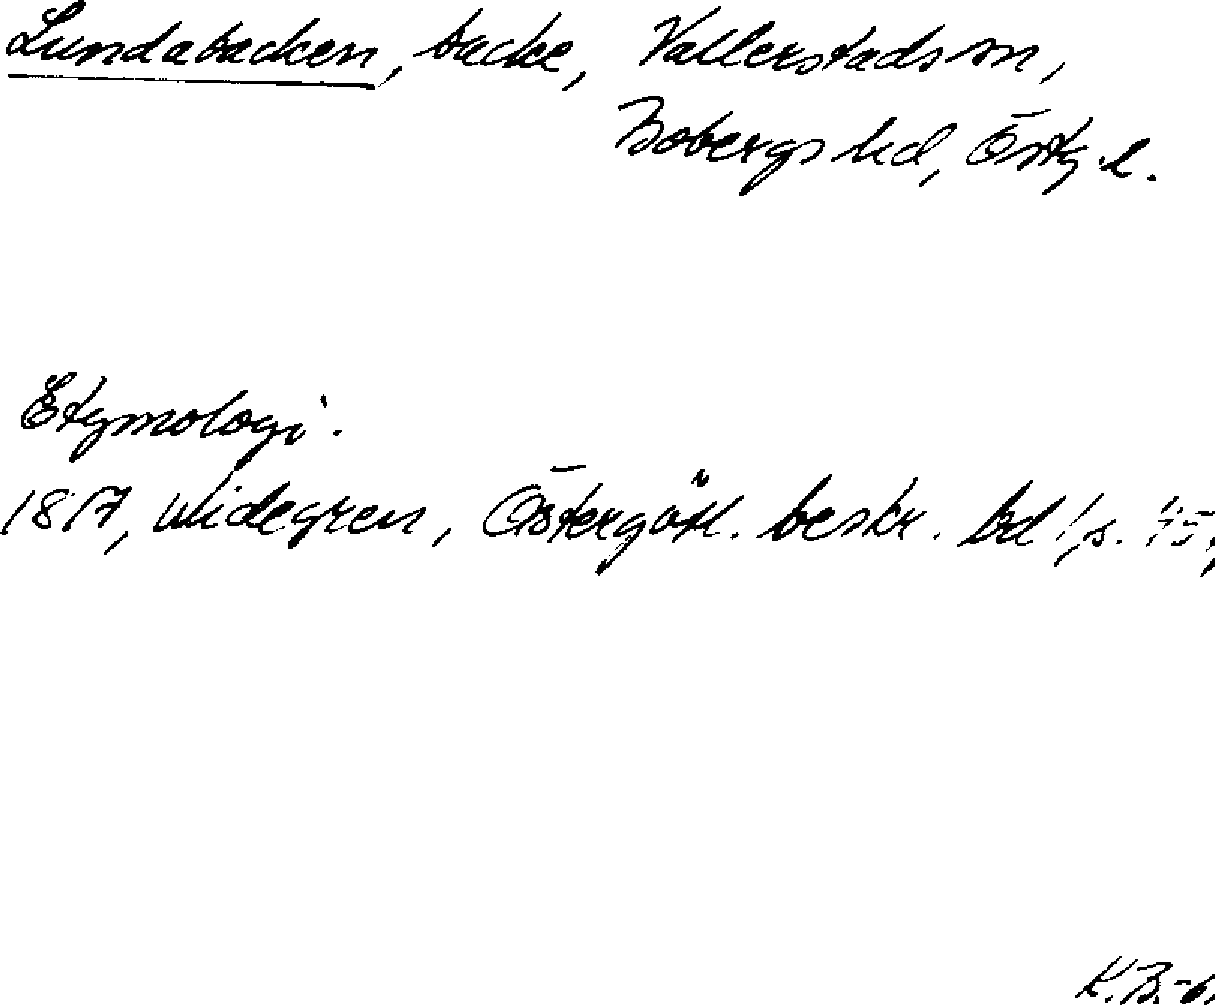 Lundabacken, backe, Vallerstads sn,
Bobergs hd, Östg. l.
Etymologi.
1817, Widegren, Östergötl. beskr. bd 1, s.
K.B.